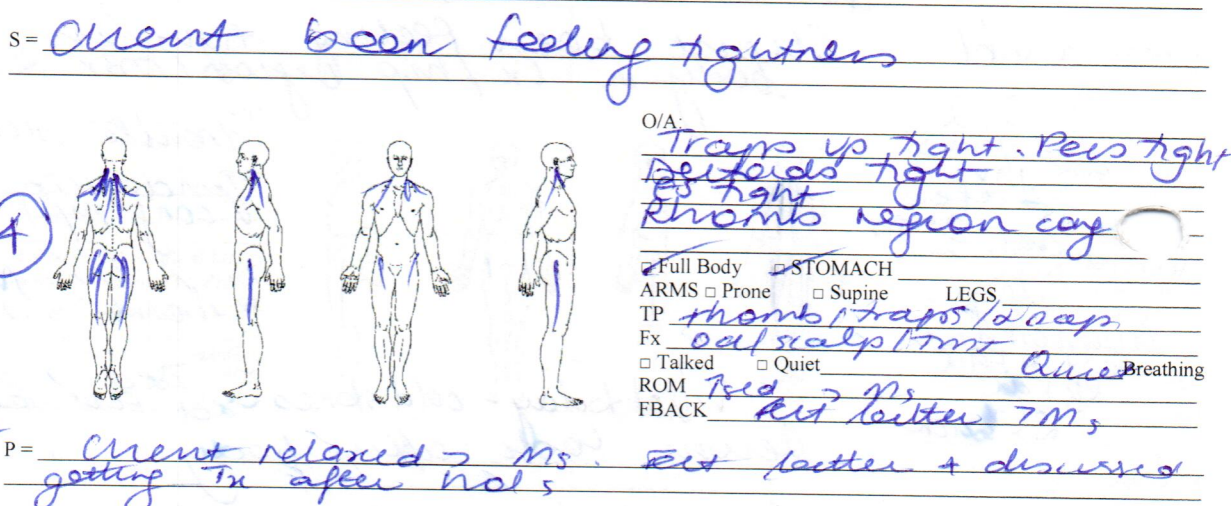 S= Client been feeling tightness
O/A:
Traps up tight. Pecs tight
Deltoids tight
ES tight
Rhomb region cong
4
□ Full Body □ STOMACH
ARMS □ Prone □ Supine LEGS
TP rhomb / traps /
Fx scalp / TMT
□ Talked □ Quiet Quiet Breathing
ROM > Ms
FBACK Felt better > Ms
P= Client relaxed > Ms. Felt better + discussed
getting Tx after hols